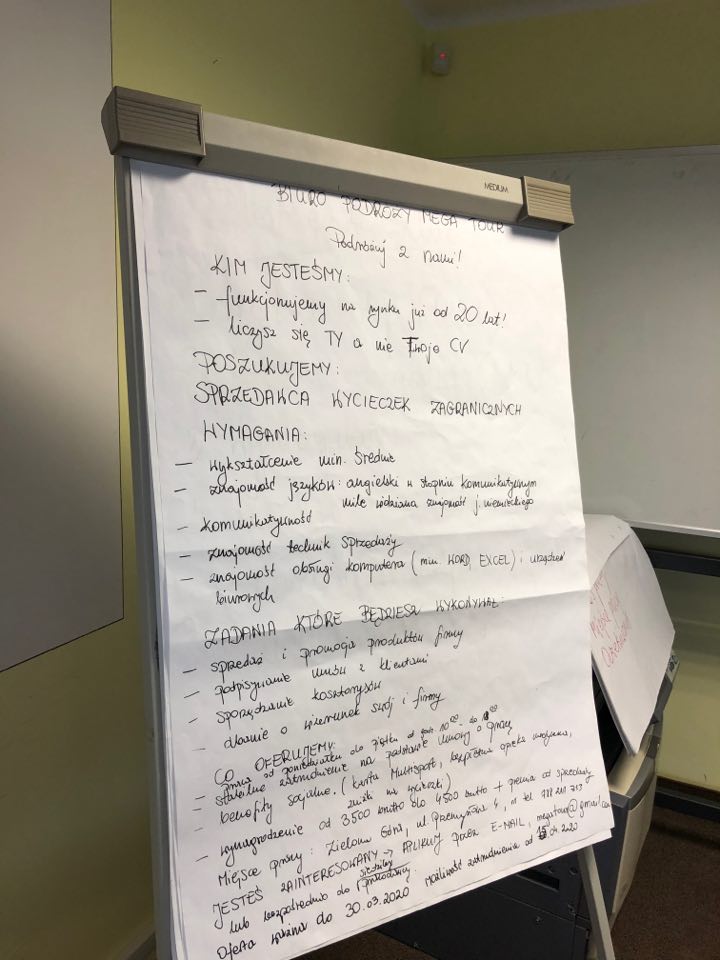 MEDIUM
BIURO PODRÓŻY MEGA TOUR
Podróżuj z nami!
KIM JESTEŚMY:
- funkcjonujemy na rynku już od 20 lat!
- liczysz się TY a nie Twoje CV
POSZUKUJEMY:
SPRZEDAWCA WYCIECZEK ZAGRANICZNYCH
WYMAGANIA:
- wykształcenie min. średnie
- znajomość języków: angielski w stopniu komunikatywnym
mile widziana znajomość j. niemieckiego
- komunikatywność
- znajomość technik sprzedaży
- znajomość obsługi komputera (min. WORD, EXCEL) i urządzeń
biurowych
ZADANIA KTÓRE BĘDZIESZ WYKONYWAŁ:
- sprzedaż i promocja produktów firmy
- podpisywanie umów z klientami
- sporządzanie kosztorysów
- dbanie o wizerunek swój i firmy
CO OFERUJEMY:
- praca od poniedziałku do piątku od godz. 10⁰⁰ - do 18⁰⁰
- stabilne zatrudnienie na podstawie umowy o pracę
- benefity socjalne. (karta Multisport, bezpłatna opieka medyczna,
zniżki na wycieczki)
- wynagrodzenie od 3500 brutto do 4500 brutto + premia od sprzedaży
Miejsce pracy: Zielona Góra, ul. Przemysłowa 4, nr tel
JESTEŚ ZAINTERESOWANY → APLIKUJ przez E-MAIL, megatour@gmail.com
lub bezpośrednio do siedziby
Oferta ważna do 30.03.2020 możliwość zatrudnienia od 15.04.2020